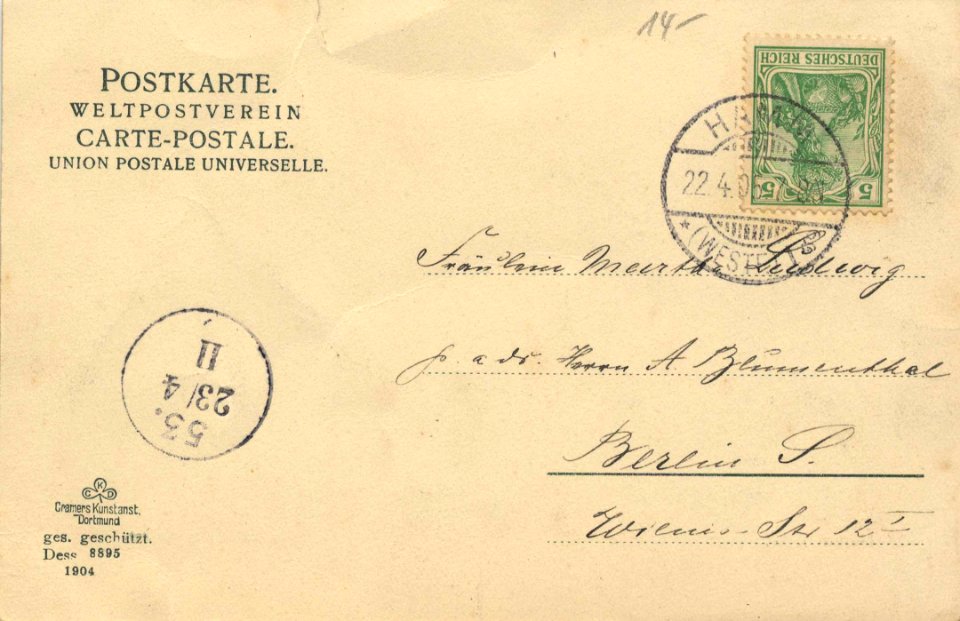 14-
POSTKARTE.
WELTPOSTVEREIN
CARTE-POSTALE.
UNION POSTALE UNIVERSELLE.
DEUTSCHES REICH
5 5
HAMM
22.4.
* (WESTF.)
Fräulein Martha Ludwig
p. adr. Herrn A Blumenthal
Berlin S.
Wiener Str 12 I
53.
23/4
II
CKD
Cramers Kunstanst.
Dortmund
ges. geschützt.
Dess 8895
1904